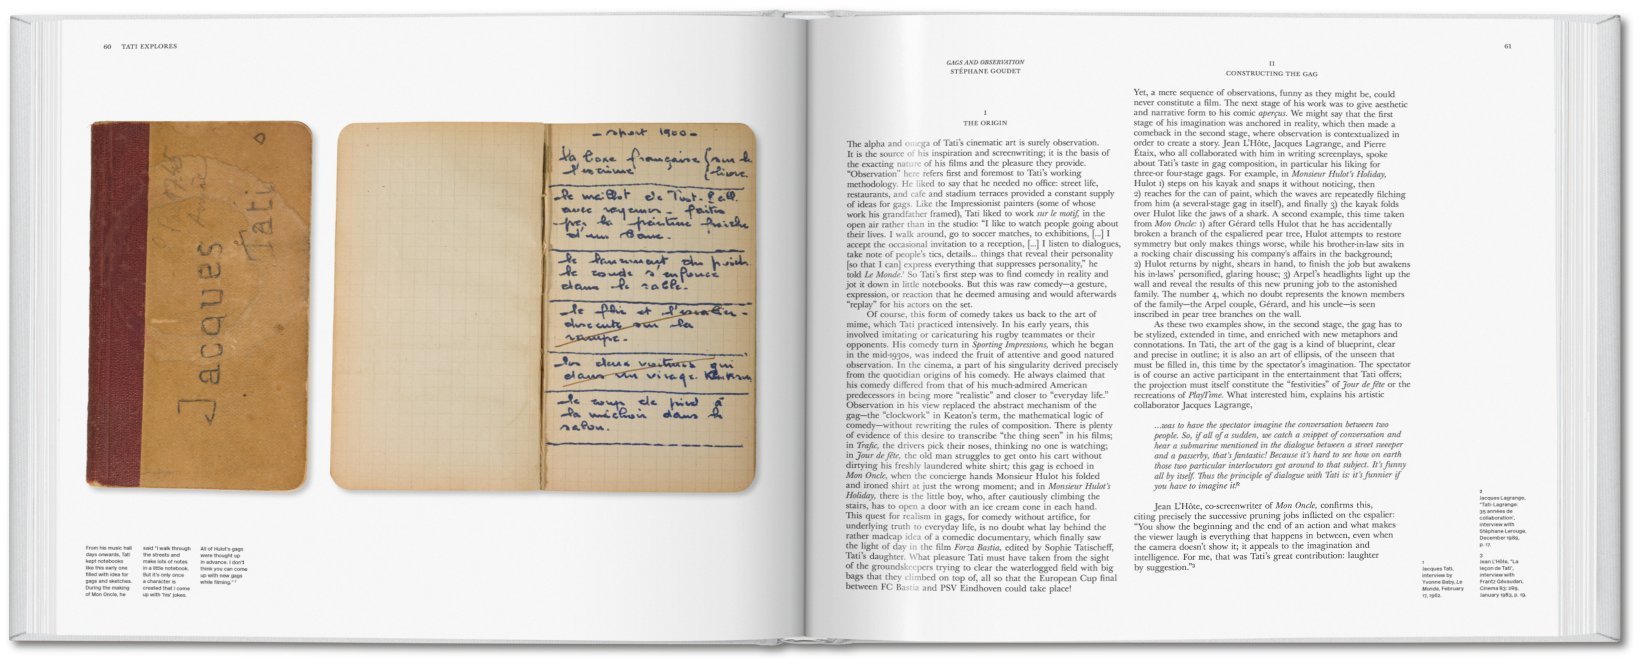 60 TATI EXPLORES
Jacques
Tati
- sport 1900 -
la boxe française (sur le
l'escrime (livre
le maillot de Foot-Ball
avec rayures - faites
par la peinture fraîche
d'un banc.
le lancement du poids
le coude s'enfonce
dans le sable.
descente sur la
rampe.
les deux voitures qui
dans un virage
le coup de pied à
la mâchoire dans le
salon.
From his music hall
days onwards, Tati
kept notebooks
like this early one
filled with idea for
gags and sketches.
During the making
of Mon Oncle, he
said "I walk through
the streets and
make lots of notes
in a little notebook.
But it's only once
a character is
created that I come
up with 'his' jokes.
All of Hulot's gags
were thought up
in advance. I don't
think you can come
up with new gags
while filming."
61
GAGS AND OBSERVATION
STÉPHANE GOUDET
I
THE ORIGIN
The alpha and omega of Tati's cinematic art is surely observation.
It is the source of his inspiration and screenwriting; it is the basis of
the exacting nature of his films and the pleasure they provide.
"Observation" here refers first and foremost to Tati's working
methodology. He liked to say that he needed no office: street life,
restaurants, and cafe and stadium terraces provided a constant supply
of ideas for gags. Like the Impressionist painters (some of whose
work his grandfather framed), Tati liked to work sur le motif, in the
open air rather than in the studio: "I like to watch people going about
their lives. I walk around, go to soccer matches, to exhibitions, [...] I
accept the occasional invitation to a reception, [...] I listen to dialogues,
take note of people's tics, details... things that reveal their personality
[so that I can] express everything that suppresses personality," he
told Le Monde.¹ So Tati's first step was to find comedy in reality and
jot it down in little notebooks. But this was raw comedy—a gesture,
expression, or reaction that he deemed amusing and would afterwards
"replay" for his actors on the set.
Of course, this form of comedy takes us back to the art of
mime, which Tati practiced intensively. In his early years, this
involved imitating or caricaturing his rugby teammates or their
opponents. His comedy turn in Sporting Impressions, which he began
in the mid-1930s, was indeed the fruit of attentive and good natured
observation. In the cinema, a part of his singularity derived precisely
from the quotidian origins of his comedy. He always claimed that
his comedy differed from that of his much-admired American
predecessors in being more "realistic" and closer to "everyday life."
Observation in his view replaced the abstract mechanism of the
gag—the "clockwork" in Keaton's term, the mathematical logic of
comedy—without rewriting the rules of composition. There is plenty
of evidence of this desire to transcribe "the thing seen" in his films;
in Trafic, the drivers pick their noses, thinking no one is watching;
in Jour de fête, the old man struggles to get onto his cart without
dirtying his freshly laundered white shirt; this gag is echoed in
Mon Oncle, when the concierge hands Monsieur Hulot his folded
and ironed shirt at just the wrong moment; and in Monsieur Hulot's
Holiday, there is the little boy, who, after cautiously climbing the
stairs, has to open a door with an ice cream cone in each hand.
This quest for realism in gags, for comedy without artifice, for
underlying truth to everyday life, is no doubt what lay behind the
rather madcap idea of a comedic documentary, which finally saw
the light of day in the film Forza Bastia, edited by Sophie Tatischeff,
Tati's daughter. What pleasure Tati must have taken from the sight
of the groundskeepers trying to clear the waterlogged field with big
bags that they climbed on top of, all so that the European Cup final
between FC Bastia and PSV Eindhoven could take place!
II
CONSTRUCTING THE GAG
Yet, a mere sequence of observations, funny as they might be, could
never constitute a film. The next stage of his work was to give aesthetic
and narrative form to his comic aperçus. We might say that the first
stage of his imagination was anchored in reality, which then made a
comeback in the second stage, where observation is contextualized in
order to create a story. Jean L'Hôte, Jacques Lagrange, and Pierre
Étaix, who all collaborated with him in writing screenplays, spoke
about Tati's taste in gag composition, in particular his liking for
three-or four-stage gags. For example, in Monsieur Hulot's Holiday,
Hulot 1) steps on his kayak and snaps it without noticing, then
2) reaches for the can of paint, which the waves are repeatedly filching
from him (a several-stage gag in itself), and finally 3) the kayak folds
over Hulot like the jaws of a shark. A second example, this time taken
from Mon Oncle: 1) after Gérard tells Hulot that he has accidentally
broken a branch of the espaliered pear tree, Hulot attempts to restore
symmetry but only makes things worse, while his brother-in-law sits in
a rocking chair discussing his company's affairs in the background;
2) Hulot returns by night, shears in hand, to finish the job but awakens
his in-laws' personified, glaring house; 3) Arpel's headlights light up the
wall and reveal the results of this new pruning job to the astonished
family. The number 4, which no doubt represents the known members
of the family—the Arpel couple, Gérard, and his uncle—is seen
inscribed in pear tree branches on the wall.
As these two examples show, in the second stage, the gag has to
be stylized, extended in time, and enriched with new metaphors and
connotations. In Tati, the art of the gag is a kind of blueprint, clear
and precise in outline; it is also an art of ellipsis, of the unseen that
must be filled in, this time by the spectator's imagination. The spectator
is of course an active participant in the entertainment that Tati offers;
the projection must itself constitute the "festivities" of Jour de fête or the
recreations of PlayTime. What interested him, explains his artistic
collaborator Jacques Lagrange,
...was to have the spectator imagine the conversation between two
people. So, if all of a sudden, we catch a snippet of conversation and
hear a submarine mentioned in the dialogue between a street sweeper
and a passerby, that's fantastic! Because it's hard to see how on earth
those two particular interlocutors got around to that subject. It's funny
all by itself. Thus the principle of dialogue with Tati is: it's funnier if
you have to imagine it!²
Jean L'Hôte, co-screenwriter of Mon Oncle, confirms this,
citing precisely the successive pruning jobs inflicted on the espalier:
"You show the beginning and the end of an action and what makes
the viewer laugh is everything that happens in between, even when
the camera doesn't show it; it appeals to the imagination and
intelligence. For me, that was Tati's great contribution: laughter
by suggestion."³
1
Jacques Tati,
interview by
Yvonne Baby, Le
Monde, February
17, 1962.
2
Jacques Lagrange,
"Tati-Lagrange:
35 années de
collaboration",
interview with
Stéphane Lerouge,
December 1989,
p. 17.
3
Jean L'Hôte, "La
leçon de Tati",
interview with
Frantz Gévaudan,
Cinema 83: 289,
January 1983, p. 19.